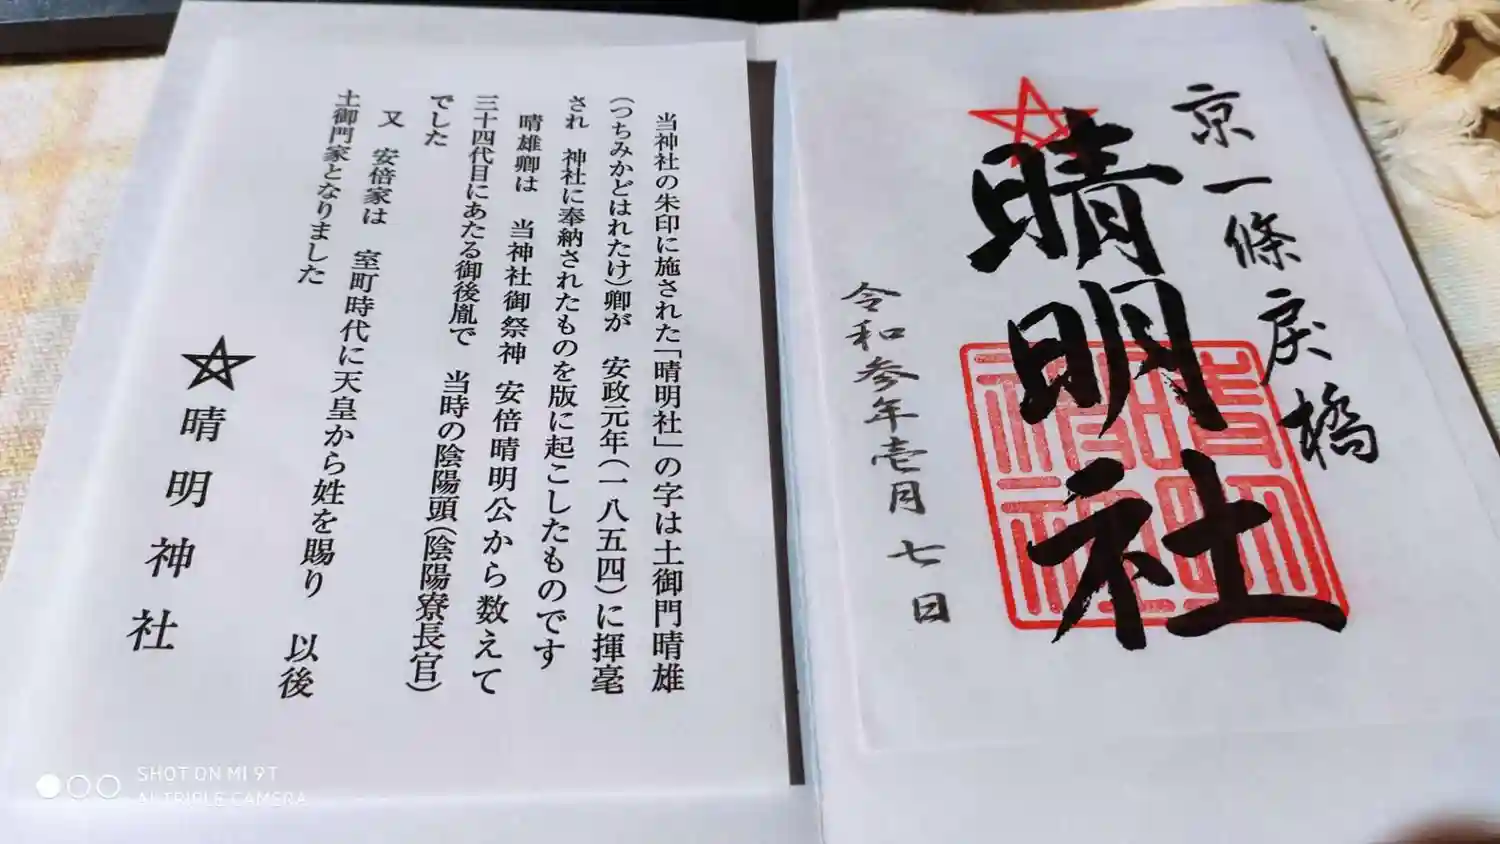 京一條戻橋
晴明社
令和参年壱月七日
当神社の朱印に施された「晴明社」の字は土御門晴雄
(つちみかどはれたけ)卿が 安政元年(一八五四)に揮毫
され 神社に奉納されたものを版に起こしたものです
晴雄卿は 当神社御祭神 安倍晴明公から数えて
三十四代目にあたる御後胤で 当時の陰陽頭(陰陽寮長官)
でした
又 安倍家は 室町時代に天皇から姓を賜り 以後
土御門家となりました
晴明神社
SHOT ON MI 9T
AI TRIPLE CAMERA